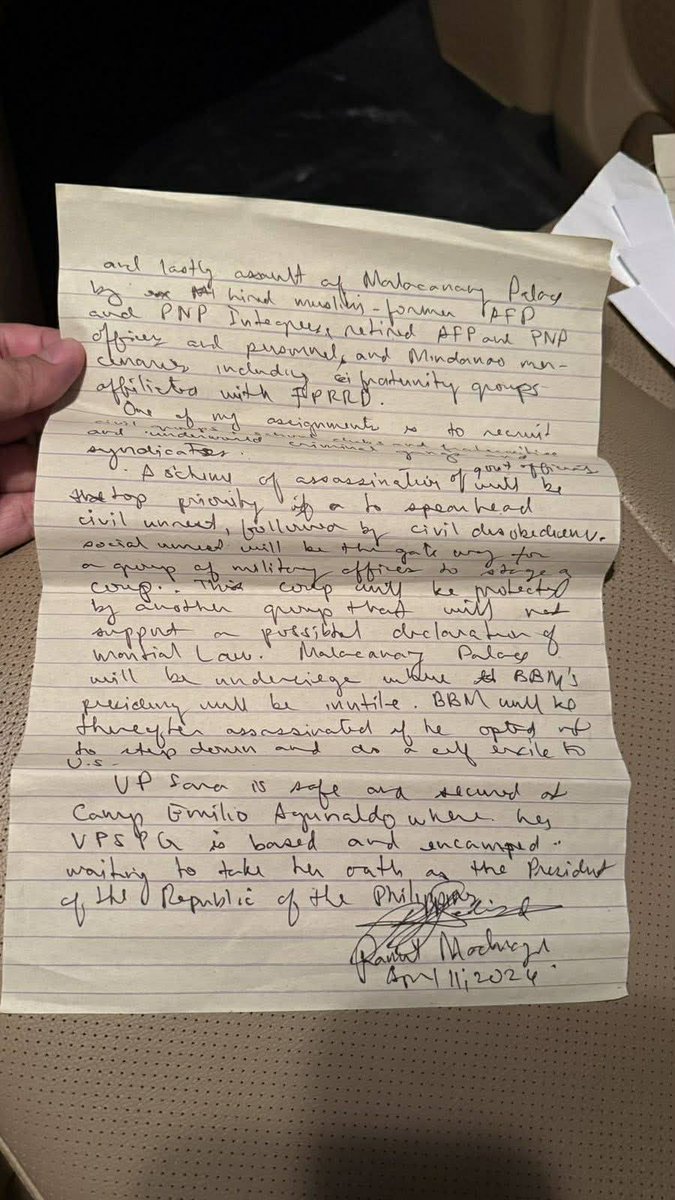 and lastly assault of Malacanang Palace
by hired muslims - former AFP
and PNP Integrees, retired AFP and PNP
officers and personnel, and Mindanao mer-
cenaries including fraternity groups
affiliated with FPRRD.
One of my assignments is to recruit
civil groups and
and underworld criminal gangs
syndicates.
A scheme of assassination of gov't officials will be
top priority to spearhead
civil unrest, followed by civil disobedience.
social unrest will be the gate way for
a group of military officers to stage a
coup.. This coup will be protected
by another group that will not
support a possible declaration of
martial Law. Malacanang Palace
will be undersiege where BBM's
presiding will be inutile. BBM will be
thereafter assassinated if he opted not
to step down and do a self exile to
U.S.
VP Sara is safe and secured at
Camp Emilio Aguinaldo where her
VPSPG is based and encamped..
waiting to take her oath as the President
of the Republic of the Philippines
April 11, 2024